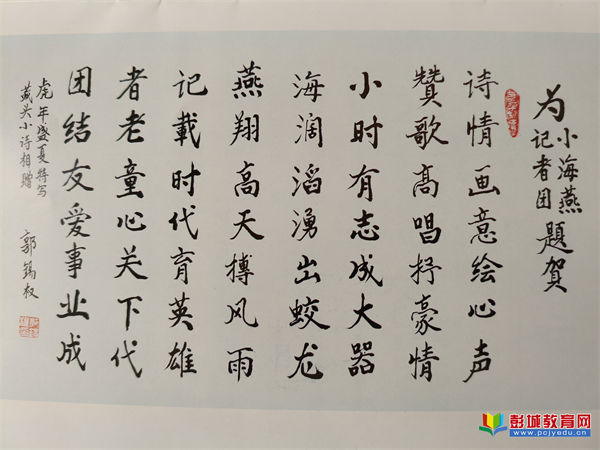 为小海燕
记者团题贺
诗情画意绘心声
赞歌高唱抒豪情
小时有志成大器
海阔滔湧出蛟龙
燕翔高天搏风雨
记載时代育英雄
者老童心关下代
团结友爱事业成
虎年盛夏特写
藏头小诗相赠
郭锡权
彭城教育网
www.pcjyedu.cn